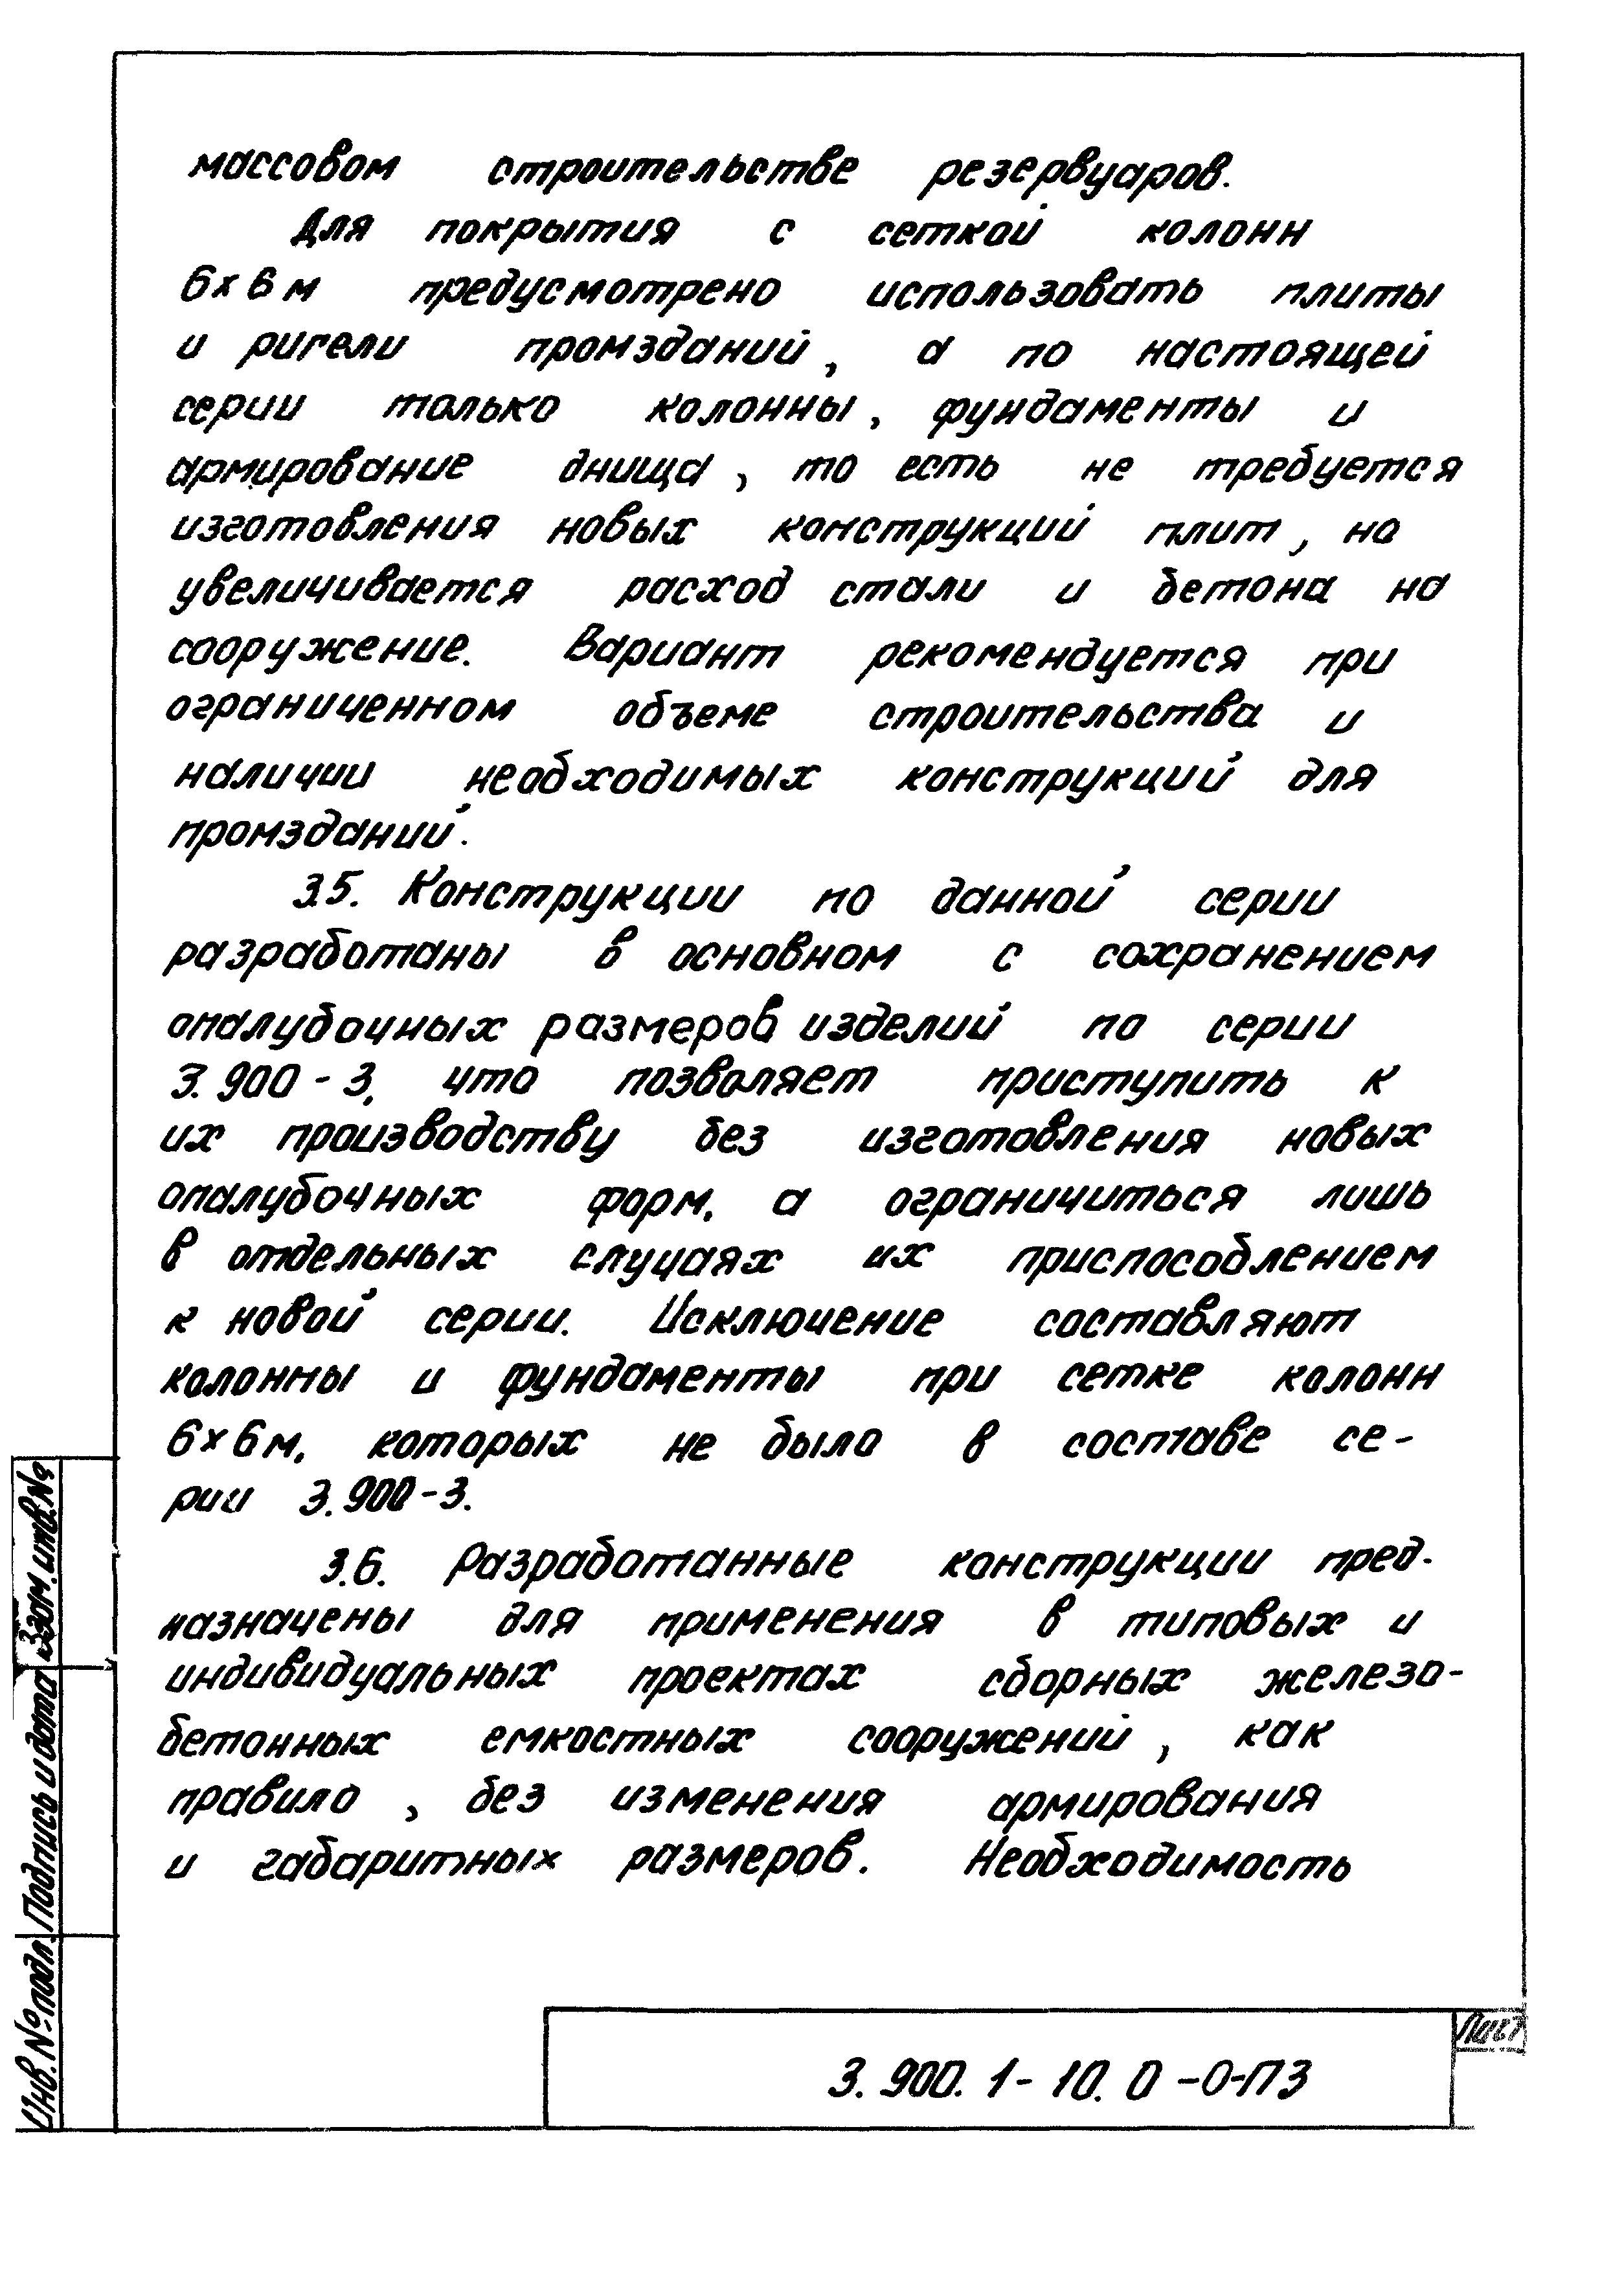 массовом строительстве резервуаров.
Для покрытия с сеткой колонн
6х6м предусмотрено использовать плиты
и ригели промзданий, а по настоящей
серии только колонны, фундаменты и
армирование днища, то есть не требуется
изготовления новых конструкций плит, но
увеличивается расход стали и бетона на
сооружение. Вариант рекомендуется при
ограниченном объеме строительства и
наличии необходимых конструкций для
промзданий.
3.5. Конструкции по данной серии
разработаны в основном с сохранением
опалубочных размеров изделий по серии
3.900-3, что позволяет приступить к
их производству без изготовления новых
опалубочных форм, а ограничиться лишь
в отдельных случаях их приспособлением
к новой серии. Исключение составляют
колонны и фундаменты при сетке колонн
6х6м, которых не было в составе се-
рии 3.900-3.
3.6. Разработанные конструкции пред-
назначены для применения в типовых и
индивидуальных проектах сборных железо-
бетонных емкостных сооружений, как
правило, без изменения армирования
и габаритных размеров. Необходимость
Инв.№подл. Подпись и дата Взам.инв.№
Лист
3.900.1-10.0-0-ПЗ